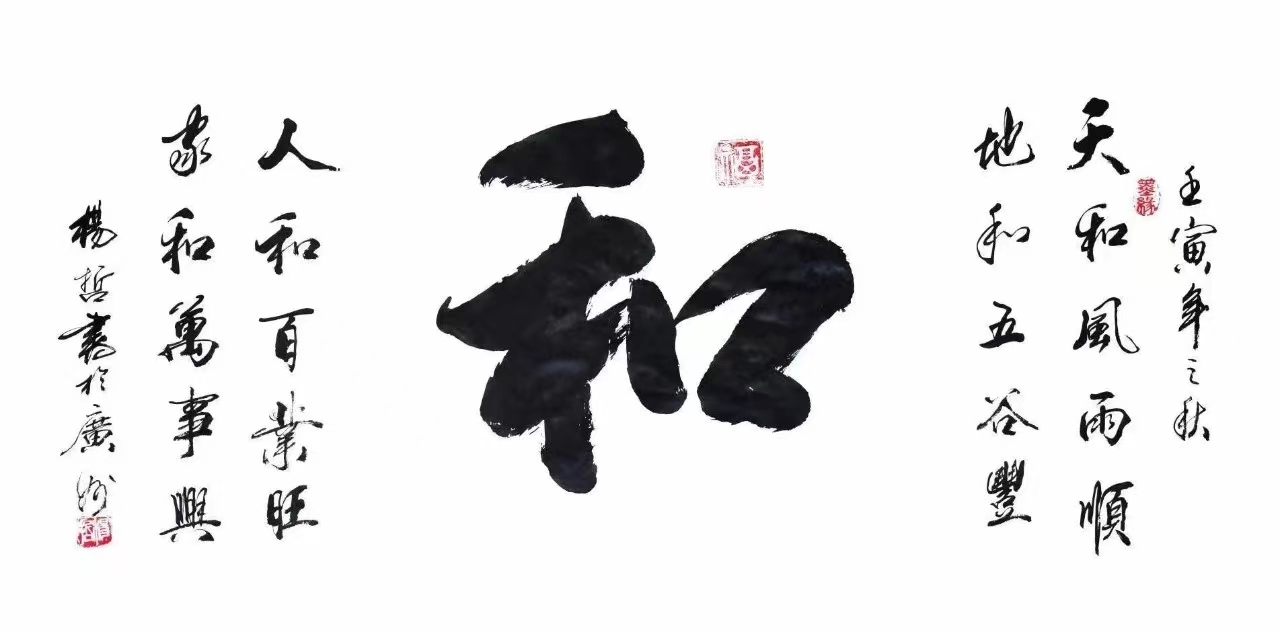 壬寅年之秋
墨緣
天和風雨順
地和五谷豐
福
和
人和百業旺
家和萬事興
楊哲書於廣州